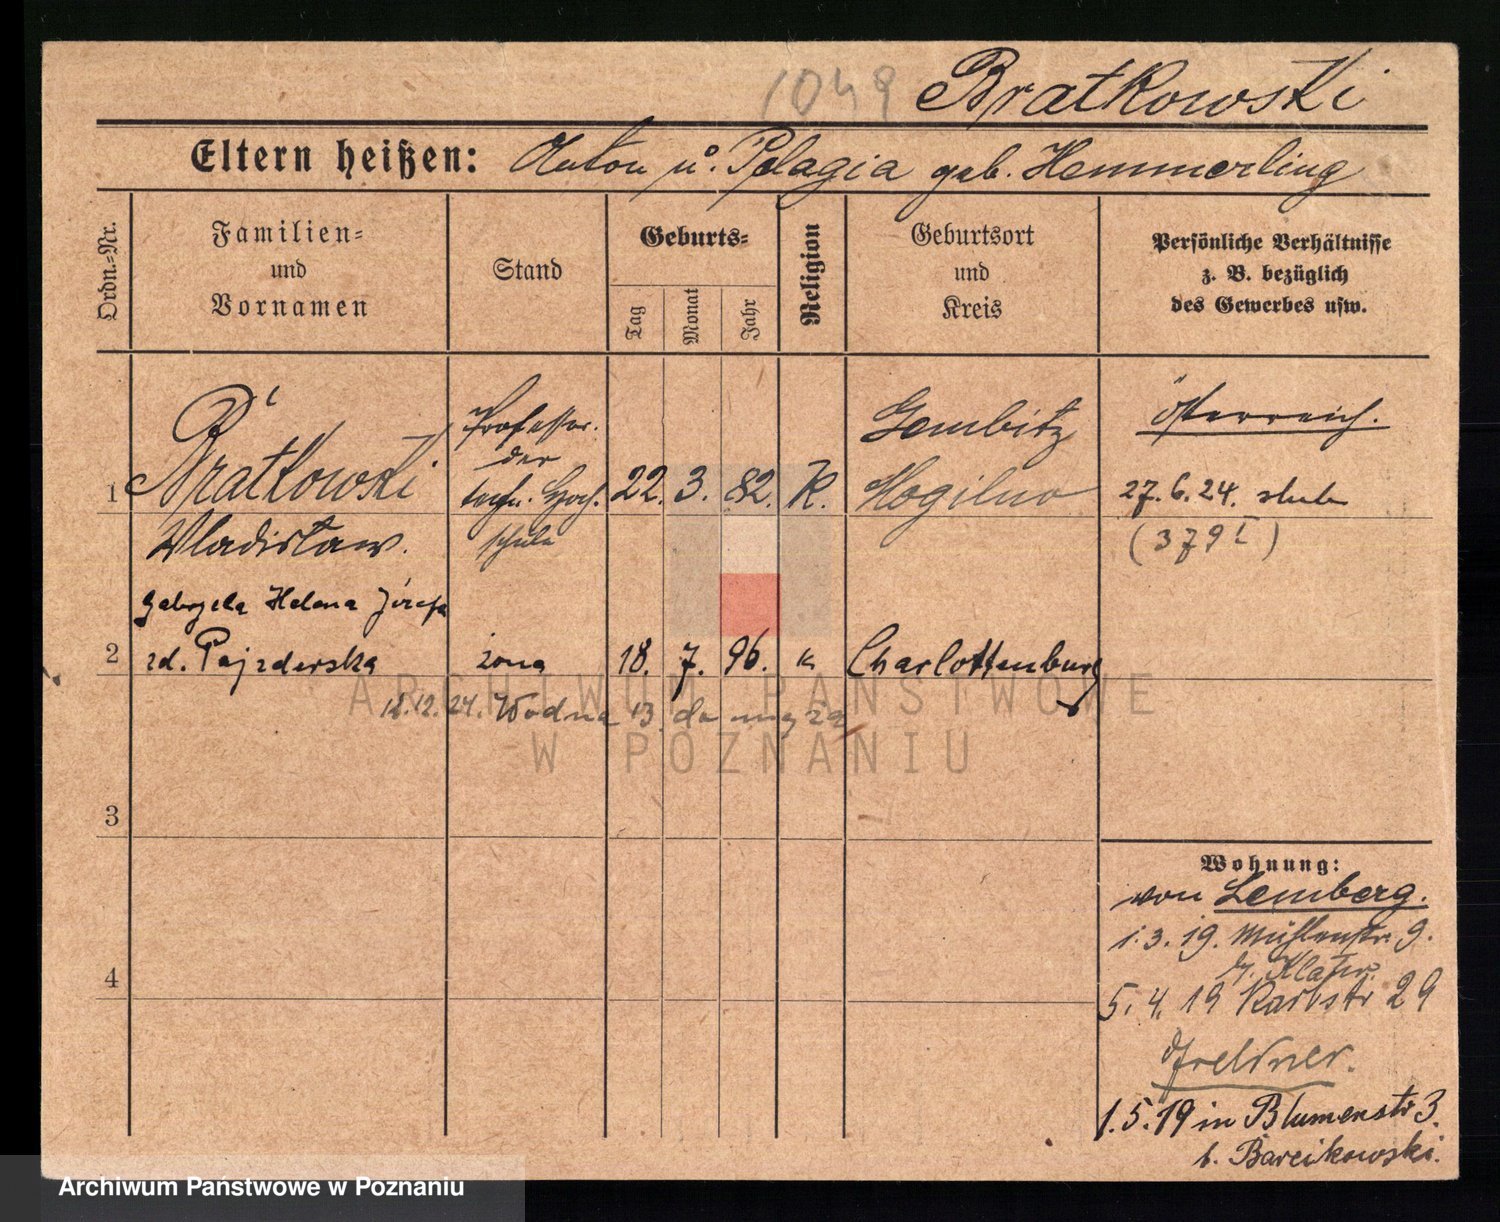 1049 Bratkowski
Eltern heißen: Anton u. Pelagia geb. Hemmerling
Ordn.-Nr.
Familien-
und
Vornamen
Stand
Geburts-
Tag
Monat
Jahr
Religion
Geburtsort
und
Kreis
Persönliche Verhältnisse
z. B. bezüglich
des Gewerbes usw.
1
Bratkowski
Wladislaw.
Professor.
der
techn. Hoch.
schule
22. 3. 82. K.
Gembitz
Mogilno
Österreich.
27.6.24. ślub
(379 I)
Gabryela Helena Józefa
2 zd. Pajzderska żona 18. 7. 96. k Charlottenburg
12.12.24. Wodna 13 do męża
3
4
Wohnung:
von Lemberg.
1.3.19. Mühlenstr. 9.
5.4.19 Karlstr 29
1.5.19 in Blumenstr 3.
b. Barcikowski.
ARCHIWUM PAŃSTWOWE
W POZNANIU
Archiwum Państwowe w Poznaniu